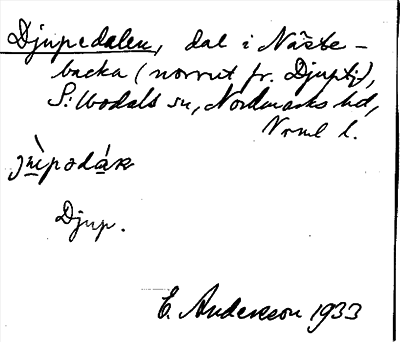 Djupedalen, dal i Näste-
backa (norrut fr. Djuptj),
S: Bodals sn, Nordmarks hd,
Vrml l.
Djup.
E. Andersson 1933